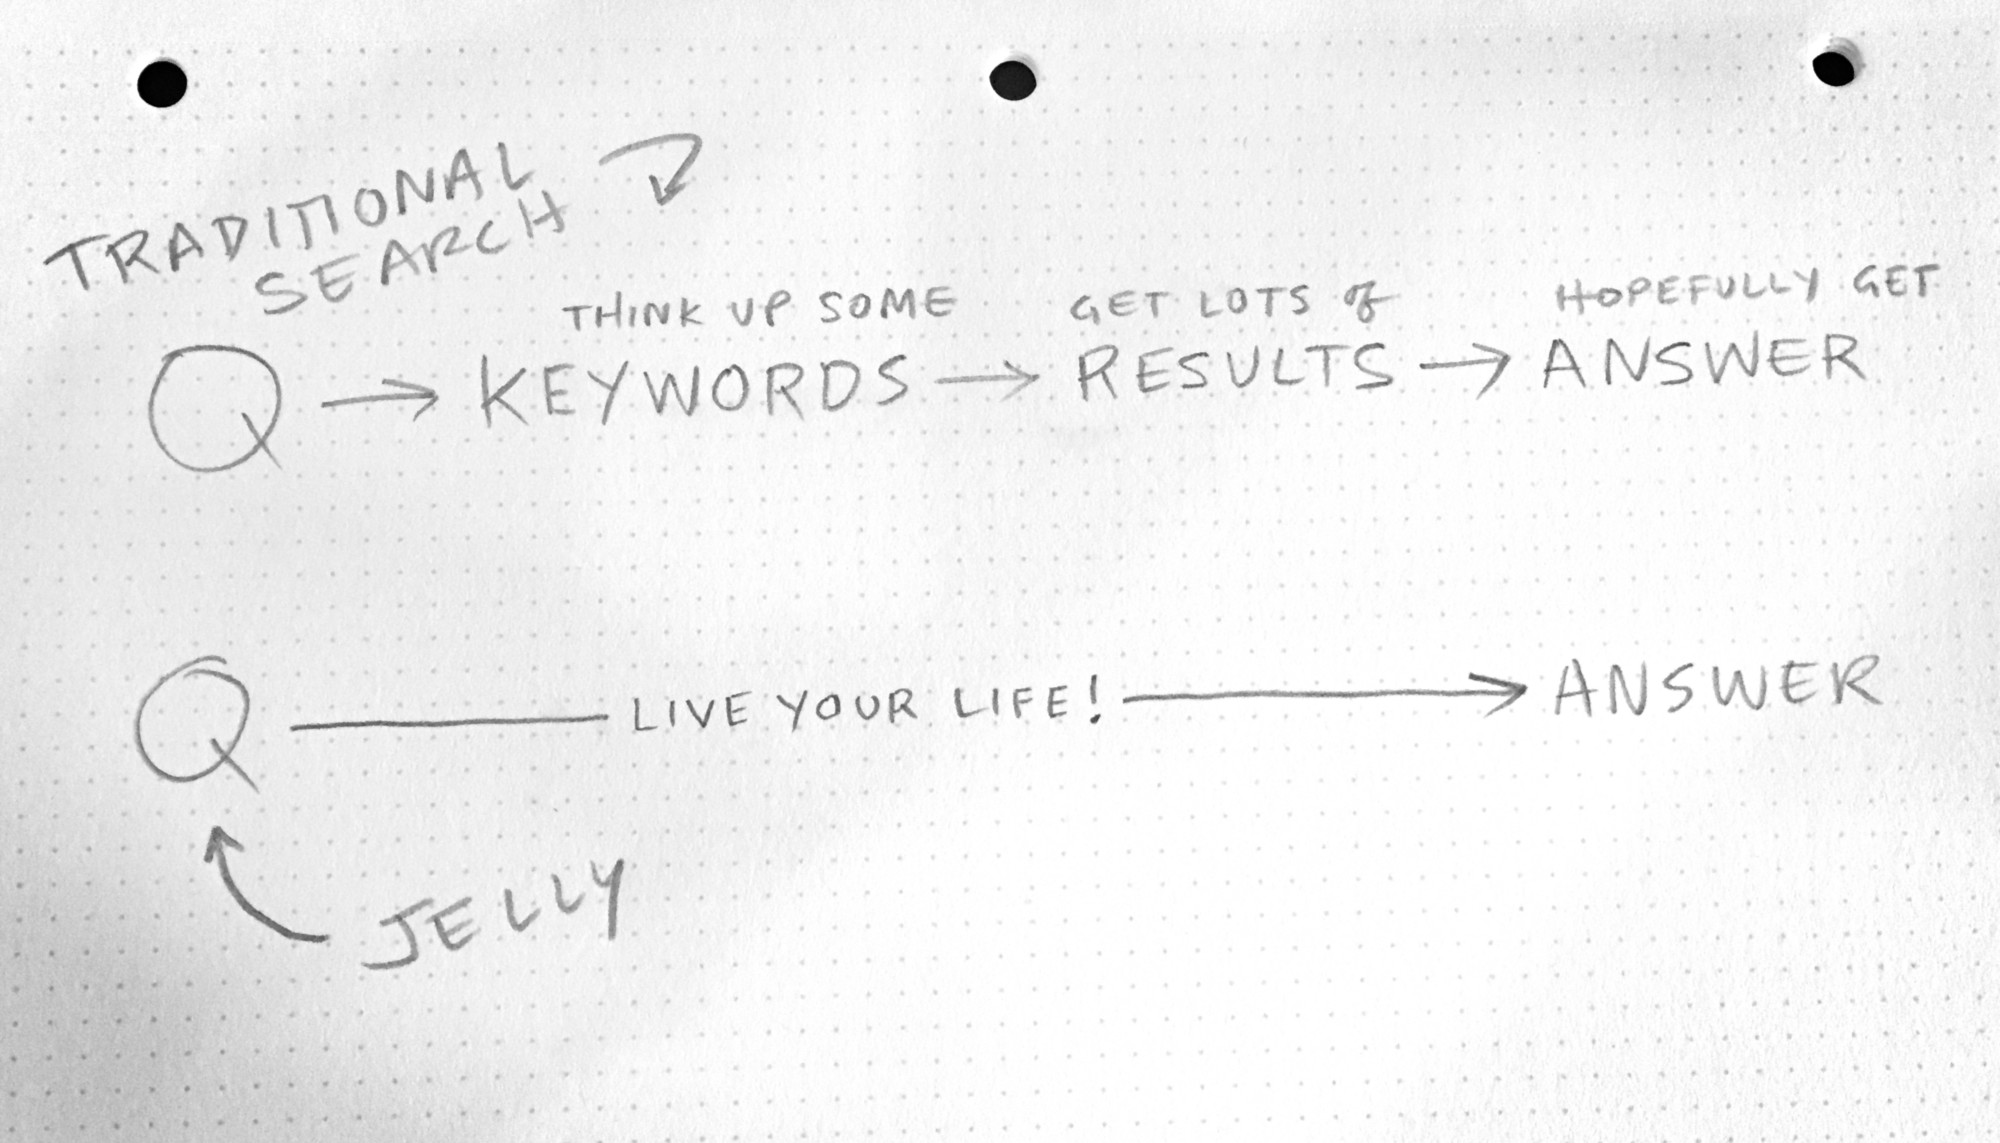 TRADITIONAL
SEARCH
THINK UP SOME
GET LOTS of
HOPEFULLY GET
Q → KEYWORDS → RESULTS → ANSWER
Q LIVE YOUR LIFE! → ANSWER
JELLY